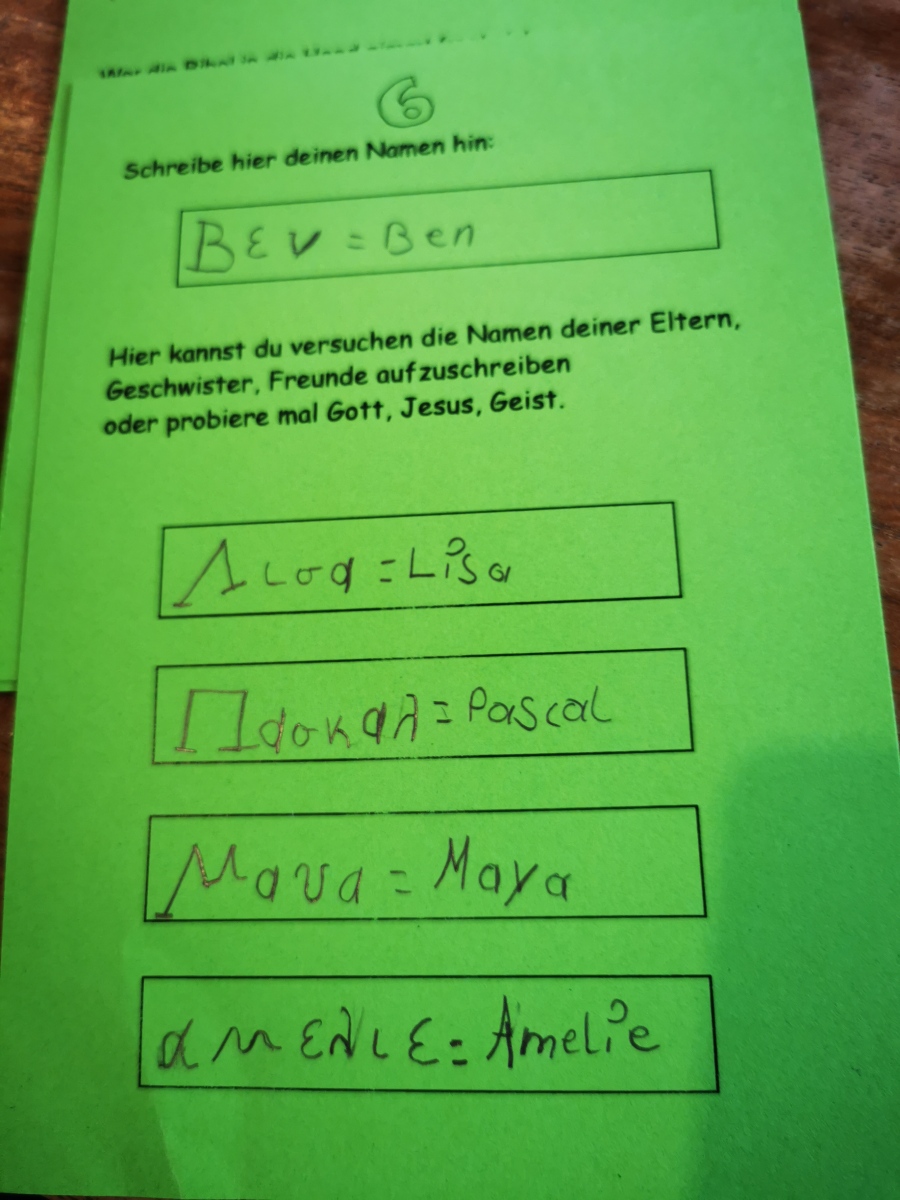 6
Schreibe hier deinen Namen hin:
Βεν = Ben
Hier kannst du versuchen die Namen deiner Eltern,
Geschwister, Freunde aufzuschreiben
oder probiere mal Gott, Jesus, Geist.
Λισα = Lisa
Πασκαλ = Pascal
Μαυα = Maya
αμελιε = Amelie